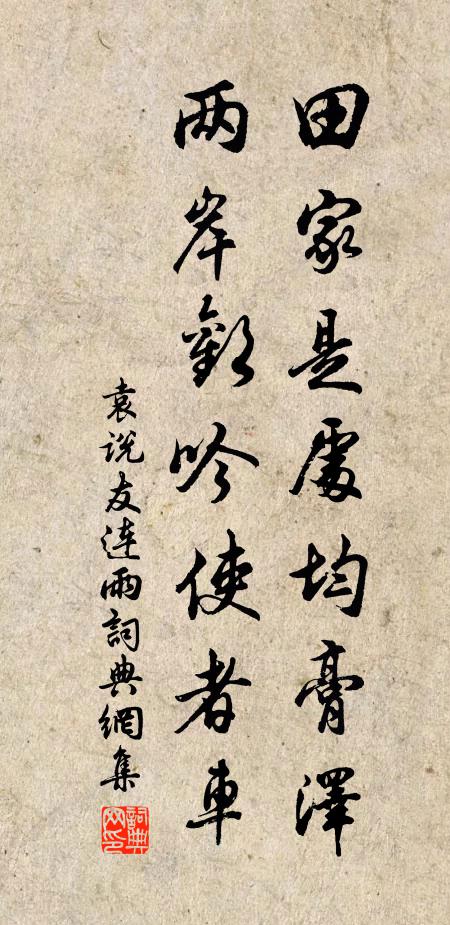 田家是處均膏澤
两岸歡吟使者車
袁説友連雨詞典網集
詞典网印